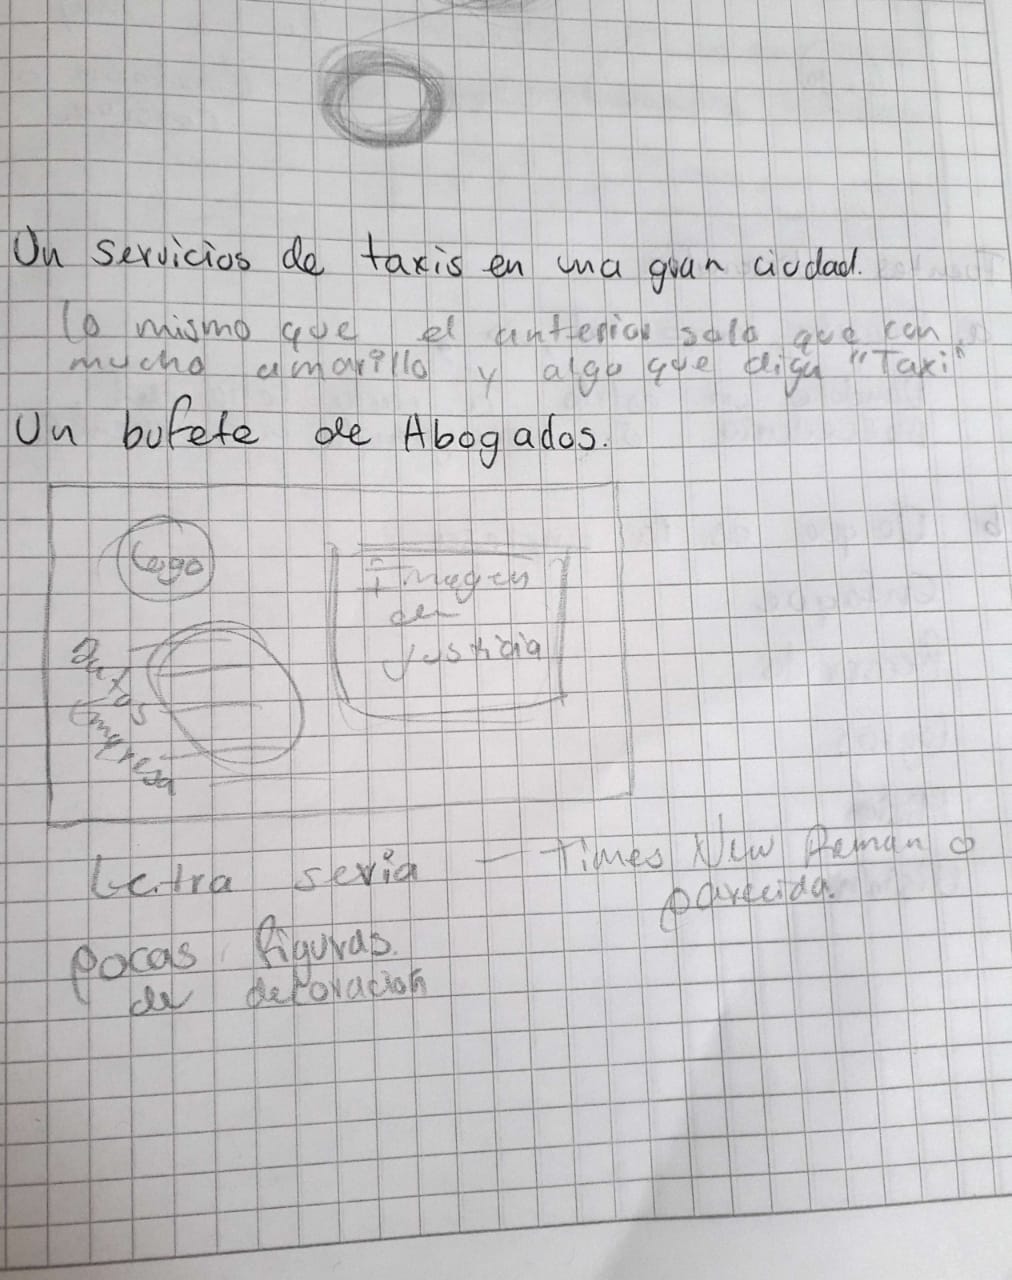 Un servicios de taxis en una gran ciudad.
lo mismo que el anterior solo que con
mucho amarillo y algo que diga "Taxi"
Un bufete de Abogados.
Logo
Imagen
de
Justicia
Datos
Empresa
Letra seria — Times New Roman o
parecida.
pocas figuras.
de decoracion